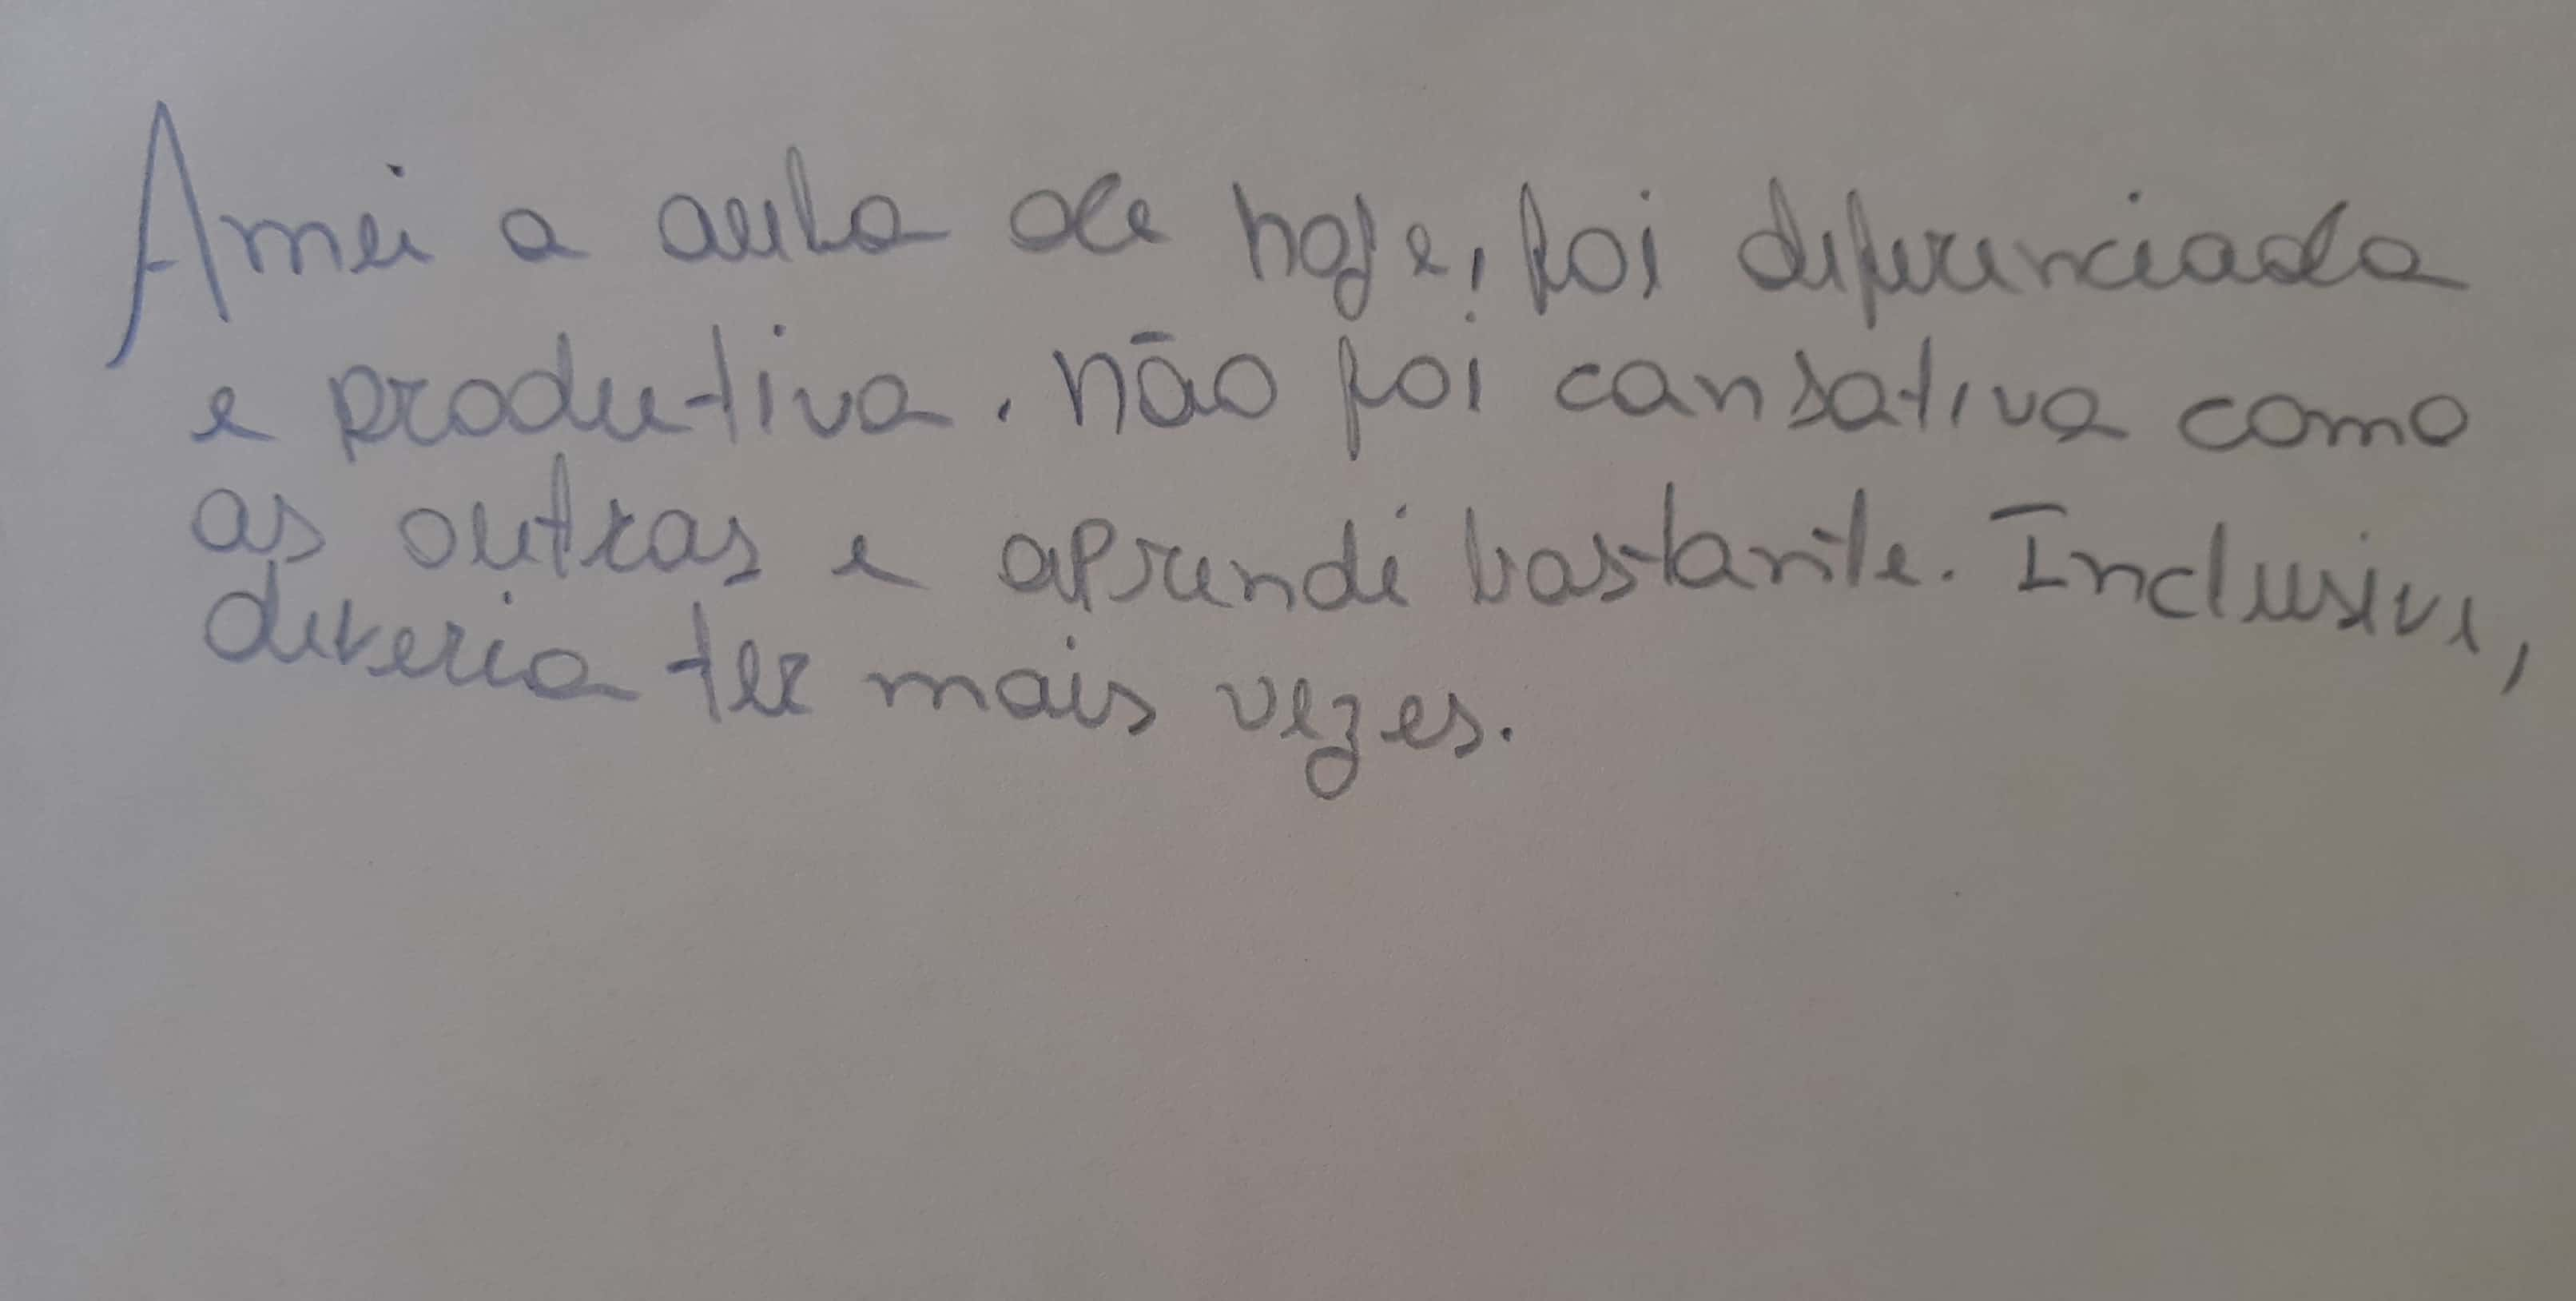 Amei a aula de hoje, foi diferenciada
e produtiva. não foi cansativa como
as outras e aprendi bastante. Inclusive,
deveria ter mais vezes.